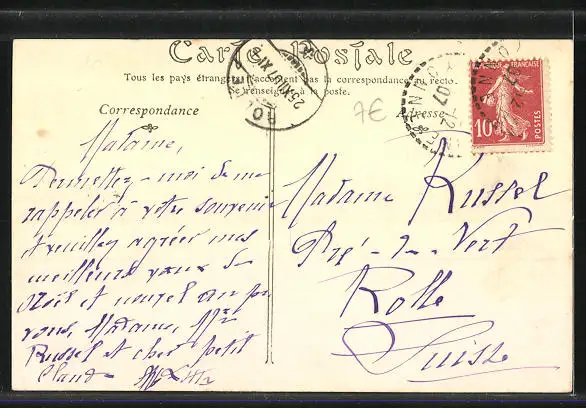 Carte Postale
Tous les pays étrangers n'acceptent pas la correspondance au recto.
Se renseigner à la poste.
Correspondance
Adresse
7€
RÉPUBLIQUE FRANÇAISE
10c
POSTES
Madame,
Permettez-moi de me
rappeler à votre souvenir
et veuillez agréer mes
meilleurs vœux de
Noël et nouvel an pour
vous, Madame, Mr
Russel et cher petit
Claude
Madame Russel
Pré-le-Vert
Rolle
Suisse